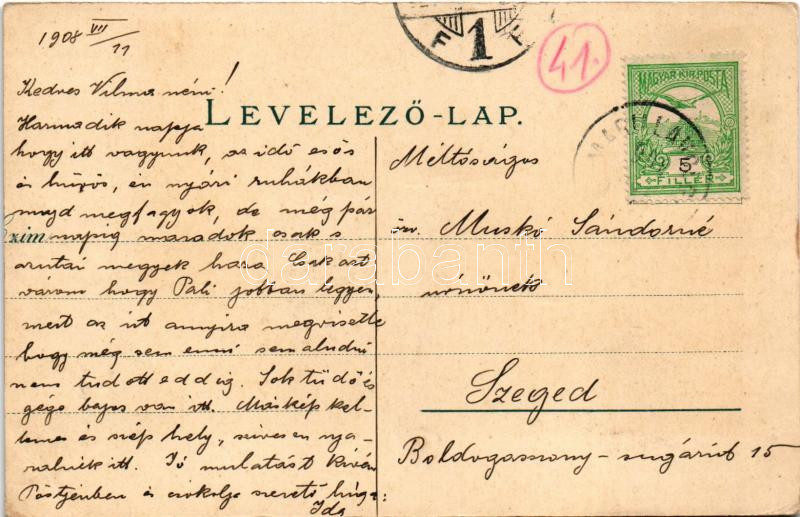 1908 VII/11
Kedves Vilma néni!
LEVELEZŐ-LAP.
Harmadik napja
hogy itt vagyunk, az idő esős
és hűvös, én nyári ruhákban
majd megfagyok, de még pár
napig maradok csak s
azután megyek haza. Csak azt
várom hogy Pali jobban legyen,
mert az út annyira megviselte
hogy még sem enni sem aludni
nem tudott eddig. Sok tüdő és
gége bajos van itt. Máskép kel-
lemes és szép hely, szívesen nya-
ralnék itt. Jó mulatást kíván
Pöstyénben és csókolja szerető húga:
Ida
Méltóságos
özv. Muskó Sándorné
úrnőnek
Szeged
Boldogasszony-sugárút 15
41.
F 1 F
MAGYAR KIR. POSTA
5
FILLÉR
darabanth